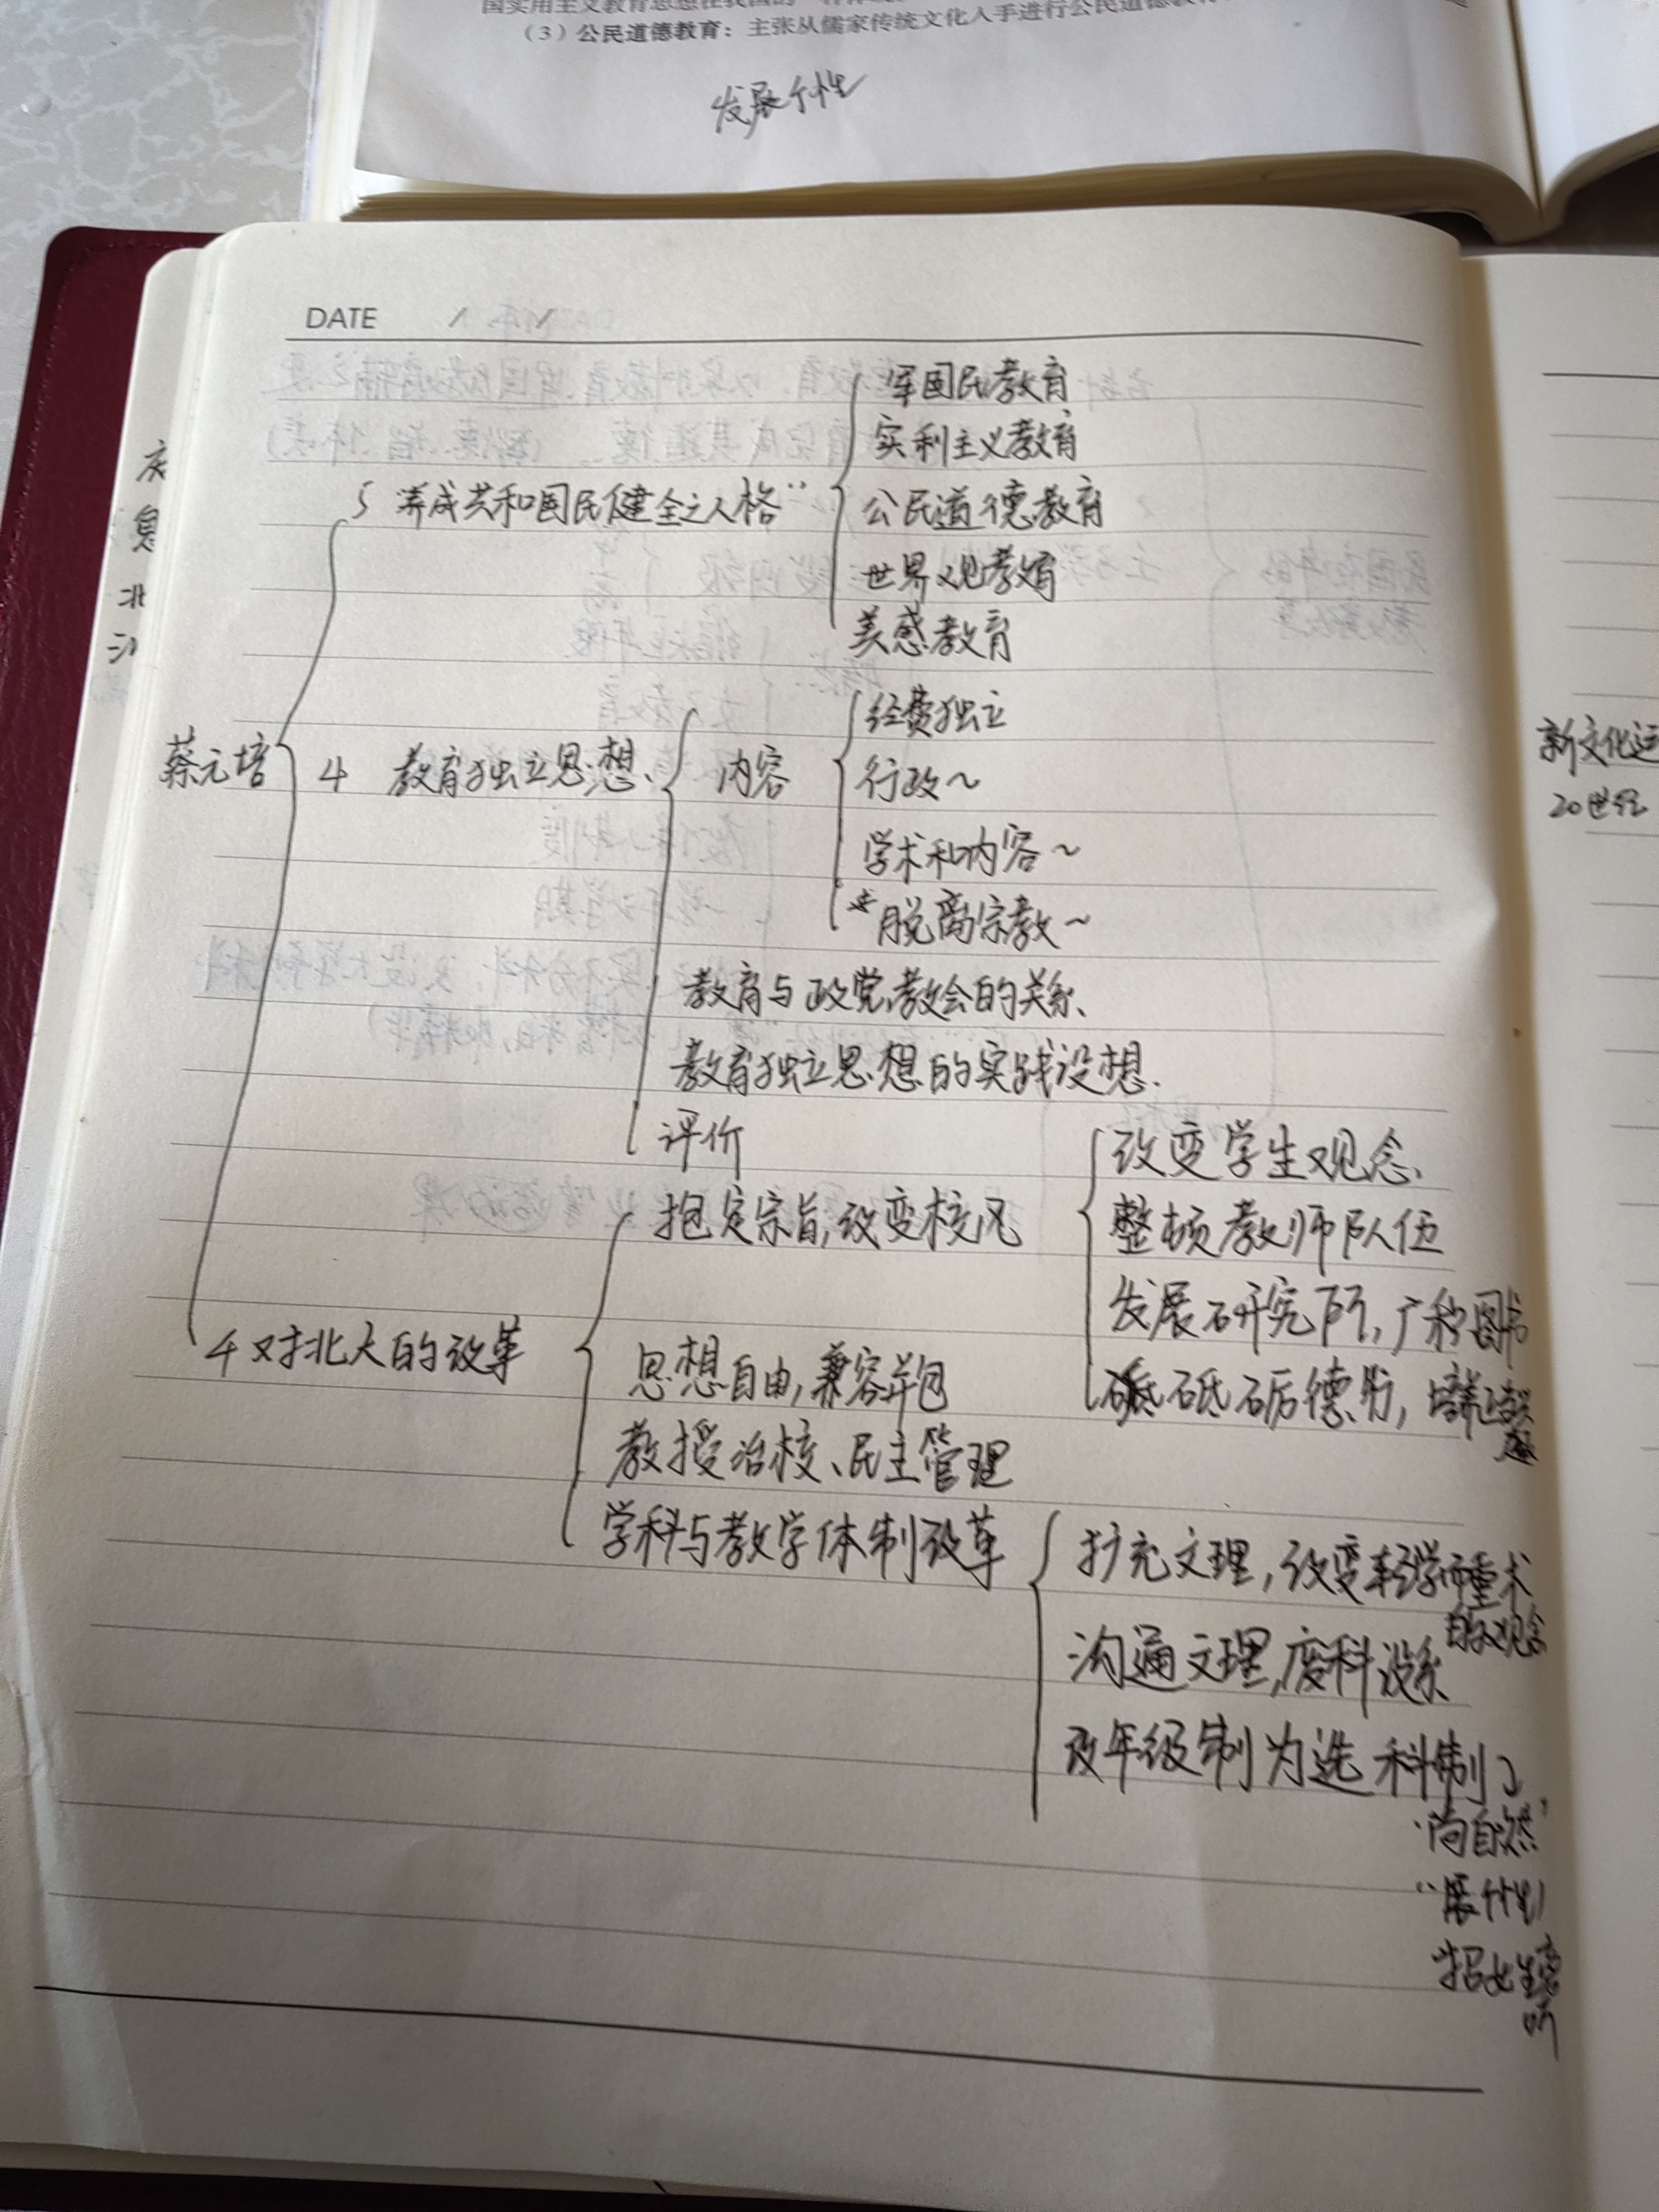 （3）公民道德教育：主张从儒家传统文化入手进行公民道德教
发展个性
DATE
军国民教育
实利主义教育
5 养成共和国民健全之人格"
公民道德教育
世界观教育
美感教育
蔡元培
4 教育独立思想、
内容
经费独立
行政~
学术和内容~
*脱离宗教~
教育与政党、教会的关系、
教育独立思想的实践设想.
评价
4 对北大的改革
抱定宗旨,改变校风
改变学生观念、
整顿教师队伍
发展研究所,广积图书
砥砺德行,培养正当兴趣
思想自由,兼容并包
教授治校、民主管理
学科与教学体制改革
扩充文理,改变轻学而重术
的观念
沟通文理,废科设系
改年级制为选科制
尚自然
"展个性
招女生旁
听
新文化运
20世纪